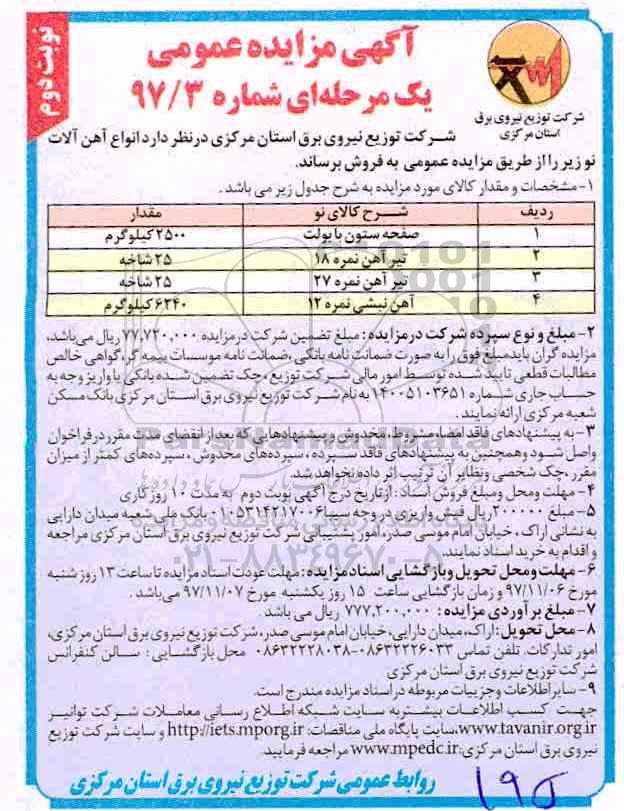 نوبت دوم
آگهی مزایده عمومی
یک مرحله‌ای شماره ۹۷/۳
شرکت توزیع نیروی برق
استان مرکزی
شرکت توزیع نیروی برق استان مرکزی در نظر دارد انواع آهن آلات
نو زیر را از طریق مزایده عمومی به فروش برساند.
۱- مشخصات و مقدار کالای مورد مزایده به شرح جدول زیر می باشد.
ردیف شرح کالای نو مقدار
۱ صفحه ستون با بولت ۲۵۰۰ کیلوگرم
۲ تیر آهن نمره ۱۸ ۲۵ شاخه
۳ تیر آهن نمره ۲۷ ۲۵ شاخه
۴ آهن نبشی نمره ۱۲ ۶۲۴۰ کیلوگرم
۲- مبلغ و نوع سپرده شرکت در مزایده: مبلغ تضمین شرکت در مزایده ۷۷,۷۲۰,۰۰۰ ریال می‌باشد،
مزایده گران باید مبلغ فوق را به صورت ضمانت نامه بانکی، ضمانت نامه موسسات بیمه گر، گواهی خالص
مطالبات قطعی تایید شده توسط امور مالی شرکت توزیع، چک تضمین شده بانکی یا واریز وجه به
حساب جاری شماره ۱۴۰۰۵۱۰۳۶۵۱ به نام شرکت توزیع نیروی برق استان مرکزی بانک مسکن
شعبه مرکزی ارائه نمایند.
۳- به پیشنهادهای فاقد امضا، مشروط، مخدوش و پیشنهادهایی که بعد از انقضای مدت مقرر در فراخوان
واصل شود و همچنین به پیشنهادهای فاقد سپرده، سپرده‌های مخدوش، سپرده‌های کمتر از میزان
مقرر، چک شخصی و نظایر آن ترتیب اثر داده نخواهد شد.
۴- مهلت و محل و مبلغ فروش اسناد: از تاریخ درج آگهی نوبت دوم به مدت ۱۰ روز کاری
۵- مبلغ ۲۰۰۰۰۰ ریال فیش واریزی در وجه سیبا ۰۱۰۵۳۱۴۲۱۷۰۰۶ بانک ملی شعبه میدان دارایی
به نشانی اراک، خیابان امام موسی صدر، امور پشتیبانی شرکت توزیع نیروی برق استان مرکزی مراجعه
و اقدام به خرید اسناد نمایند.
۶- مهلت و محل تحویل و بازگشایی اسناد مزایده: مهلت عودت اسناد مزایده تا ساعت ۱۳ روز شنبه
مورخ ۹۷/۱۱/۰۶ و زمان بازگشایی ساعت ۱۵ روز یکشنبه مورخ ۹۷/۱۱/۰۷ می‌باشد.
۷- مبلغ برآوردی مزایده: ۷۷۷,۲۰۰,۰۰۰ ریال می باشد
۸- محل تحویل: اراک، میدان دارایی، خیابان امام موسی صدر، شرکت توزیع نیروی برق استان مرکزی،
امور تدارکات. تلفن تماس ۰۸۶۳۲۲۲۶۰۳۳-۰۸۶۳۲۲۲۸۰۳۸ محل بازگشایی: سالن کنفرانس
شرکت توزیع نیروی برق استان مرکزی
۹- سایر اطلاعات و جزییات مربوطه در اسناد مزایده مندرج است.
جهت کسب اطلاعات بیشتر به سایت شبکه اطلاع رسانی معاملات شرکت توانیر
www.tavanir.org.ir، سایت پایگاه ملی مناقصات: http://iets.mporg.ir و سایت شرکت توزیع
نیروی برق استان مرکزی: www.mpedc.ir مراجعه فرمایید.
روابط عمومی شرکت توزیع نیروی برق استان مرکزی
ParsNamadData
۰۲۱-۸۸۳۴۹۶۷۰-۵